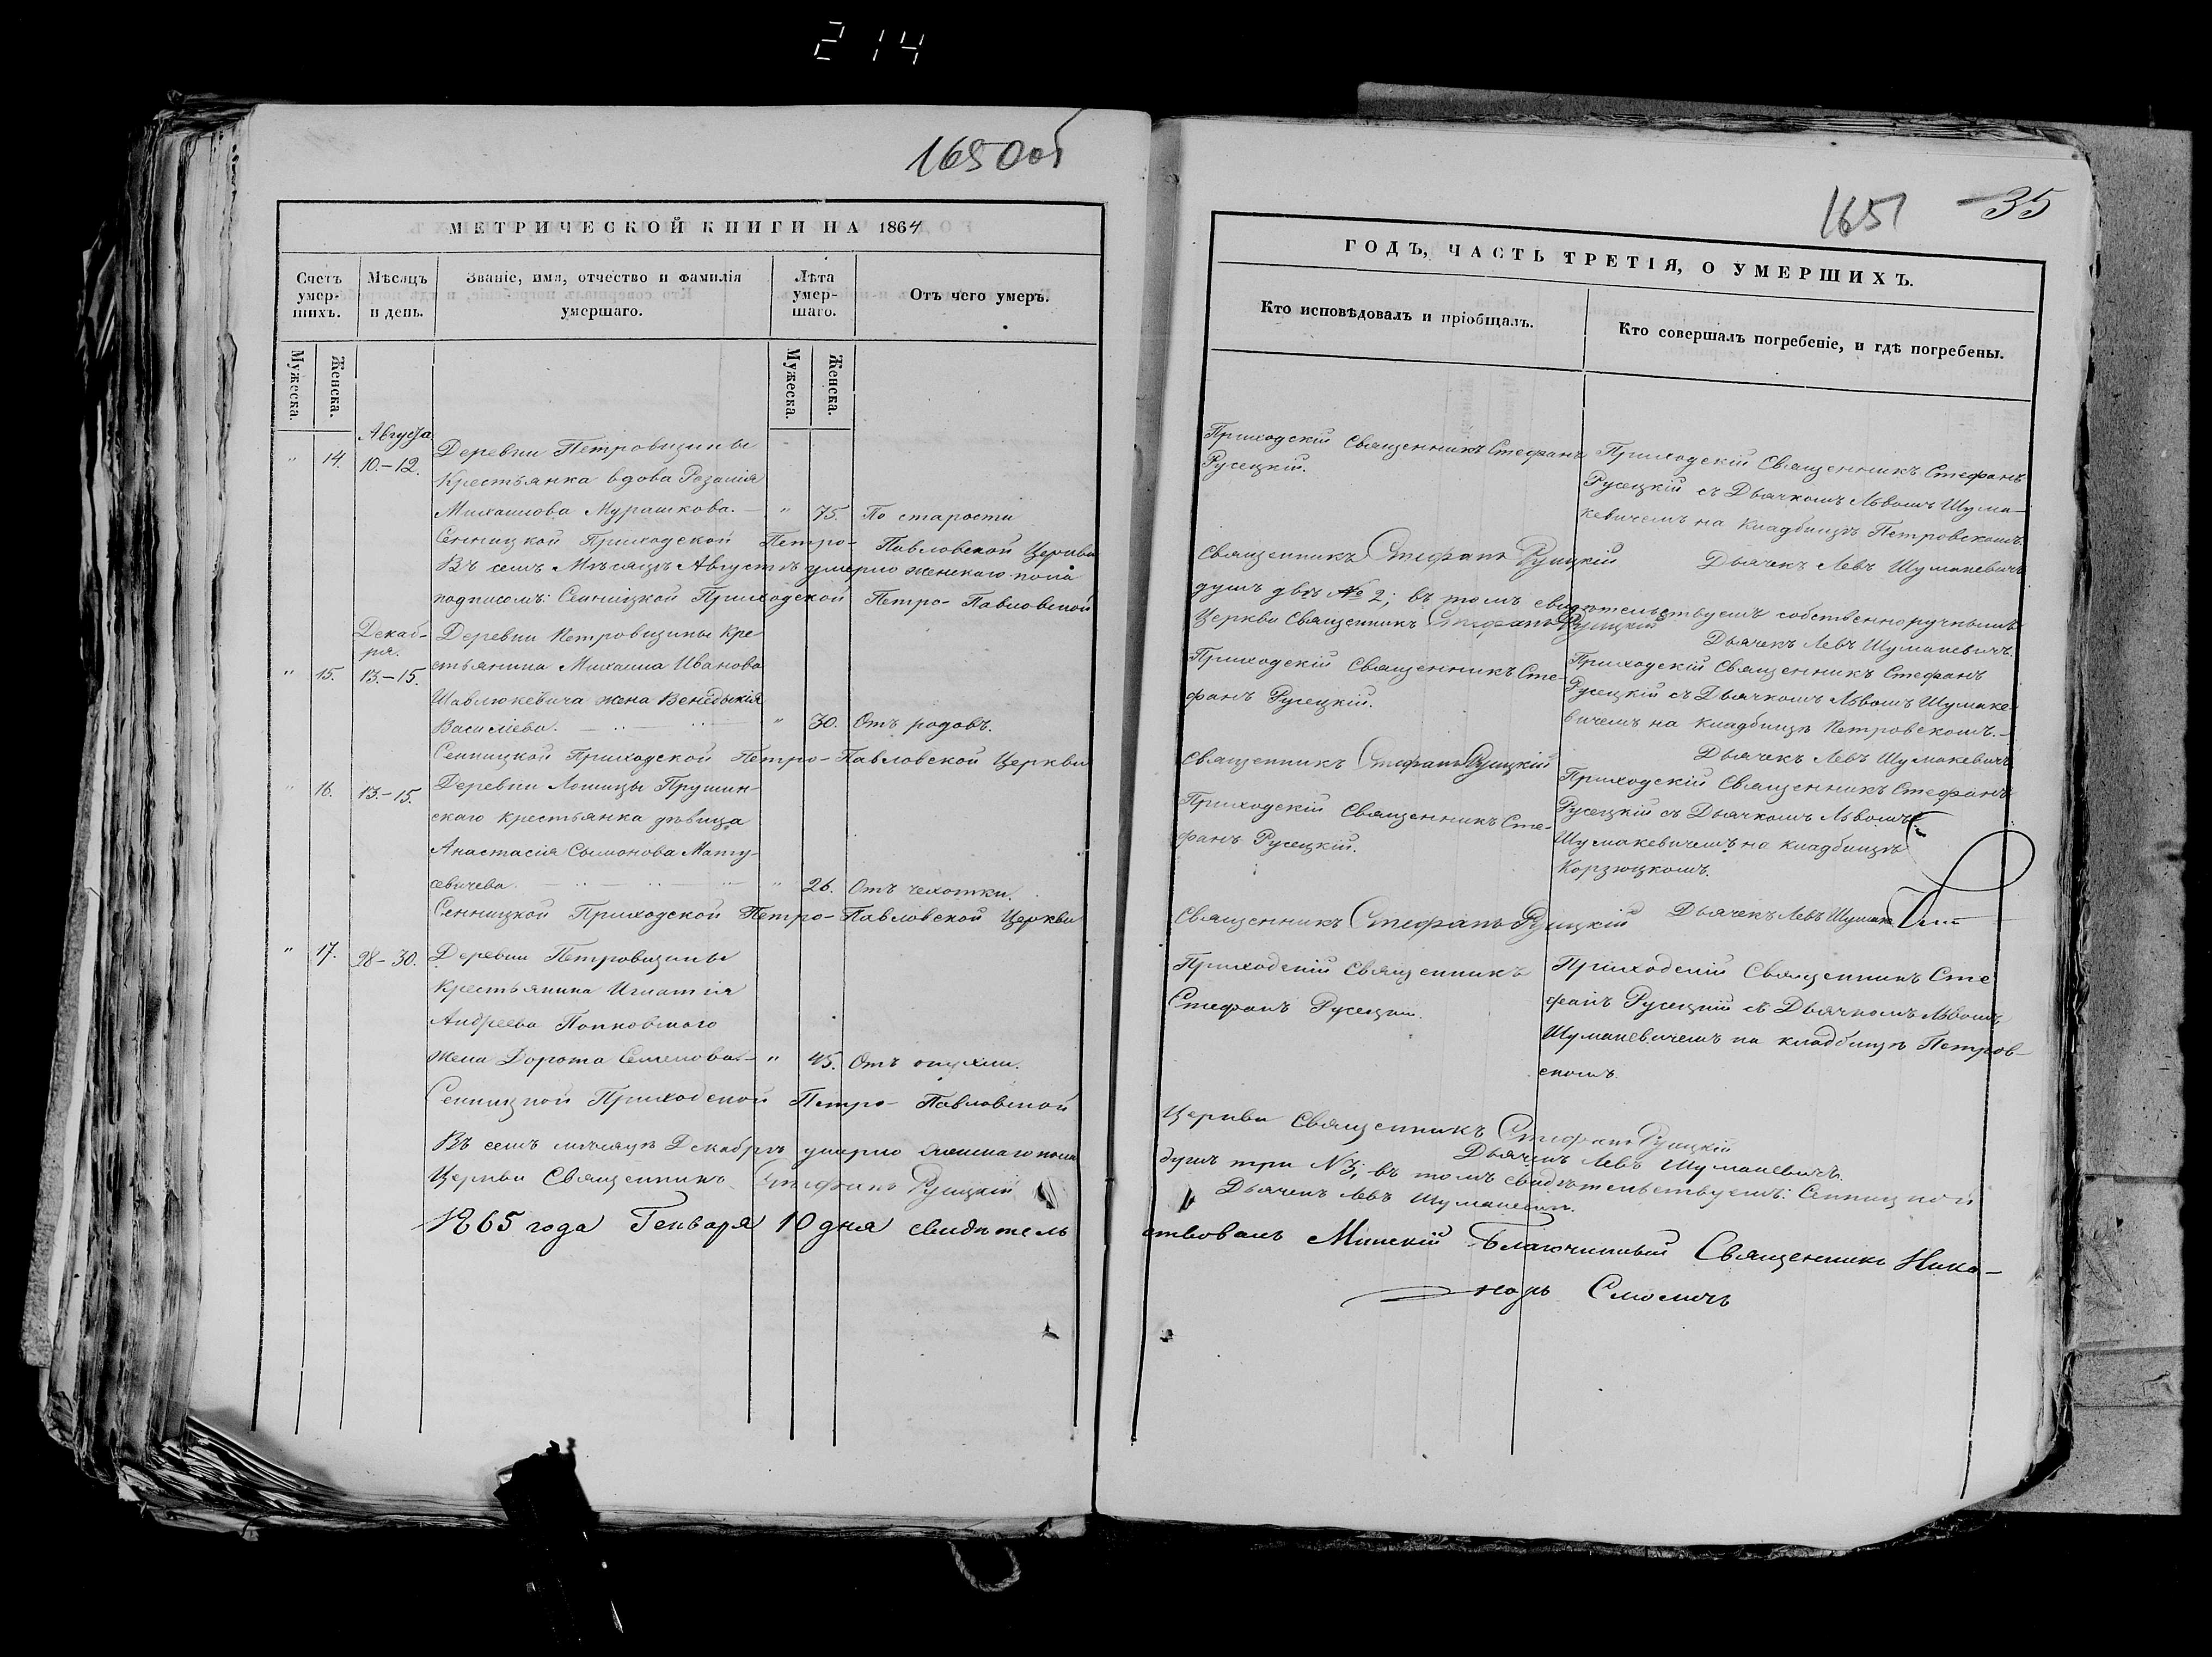 214
1650об
МЕТРИЧЕСКОЙ КНИГИ НА 1864
Счетъ умер-шихъ.
Мѣсяцъ и день.
Званіе, имя, отчество и фамилія умершаго.
Лѣта умер-шаго.
Отъ чего умеръ.
Мужеска.
Женска.
Мужеска.
Женска.
Августа
" 14. 10.-12. Деревни Петровщины
Крестьянка вдова Розалія
Михаилова Мурашкова. - " 75. По старости
Сенницкой Приходской Петро-Павловской Церкви
Въ семъ Мѣсяцѣ Августѣ умерло женскаго пола
подписомъ: Сенницкой Приходской Петро-Павловской
Декаб-
ря.
Деревни Петровщины Кре-
" 15. 13.-15. стьянина Михаила Иванова
Шавлюкевича жена Венедыкія
Василіева. " 30. Отъ родовъ.
Сенницкой Приходской Петро-Павловской Церкви
" 16. 13.-15. Деревни Лошицы Прушин-
скаго крестьянка дѣвица
Анастасія Сымонова Мату-
севичева. " 26. Отъ чехотки.
Сенницкой Приходской Петро-Павловской Церкви
" 17. 28-30. Деревни Петровщины
Крестьянина Игнатія
Андреева Попковского
жена Дорота Семенова. - " 45. Отъ опухли.
Сенницкой Приходской Петро-Павловской
Въ семъ мѣсяцѣ Декабрѣ умерло женскаго пола
Церкви Священникъ Стефанъ Русецкій
1865 года Генваря 10 дня свидѣтель
1651 35
ГОДЪ, ЧАСТЬ ТРЕТІЯ, О УМЕРШИХЪ.
Кто исповѣдовалъ и пріобщалъ.
Кто совершалъ погребеніе, и гдѣ погребены.
Приходскій Священникъ Стефанъ
Русецкій.
Приходскій Священникъ Стефанъ
Русецкій съ Дьячкомъ Львомъ Шума-
кевичемъ на кладбищѣ Петровскомъ.
Священникъ Стефанъ Русецкій Дьячекъ Левъ Шумакевичъ
душъ двѣ № 2; въ томъ свидѣтельствуемъ собственноручнымъ
Церкви Священникъ Стефанъ Русецкій
Дьячекъ Левъ Шумакевичъ.
Приходскій Священникъ Сте-
фанъ Русецкій.
Приходскій Священникъ Стефанъ
Русецкій съ Дьячкомъ Львомъ Шумаке-
вичемъ на кладбищѣ Петровскомъ.-
Священникъ Стефанъ Русецкій Дьячекъ Левъ Шумакевичъ
Приходскій Священникъ Сте-
фанъ Русецкій.
Приходскій Священникъ Стефанъ
Русецкій съ Дьячкомъ Львомъ
Шумакевичемъ на кладбищѣ
Корзюцкомъ.
Священникъ Стефанъ Русецкій Дьячекъ Левъ
Приходскій Священникъ
Стефанъ Русецкій.
Приходскій Священникъ Сте
фанъ Русецкій съ Дьячкомъ Львомъ
Шумакевичемъ на кладбищѣ Петров-
скомъ.
Церкви Священникъ Стефанъ Русецкій
Дьячекъ Левъ Шумакевичъ.
душъ три №3; въ томъ свидѣтельствуемъ: Сенницкой
Дьячекъ Левъ Шумакевичъ.
ствовалъ Минскій Благочинный Священникъ Ника-
норъ Смоличъ